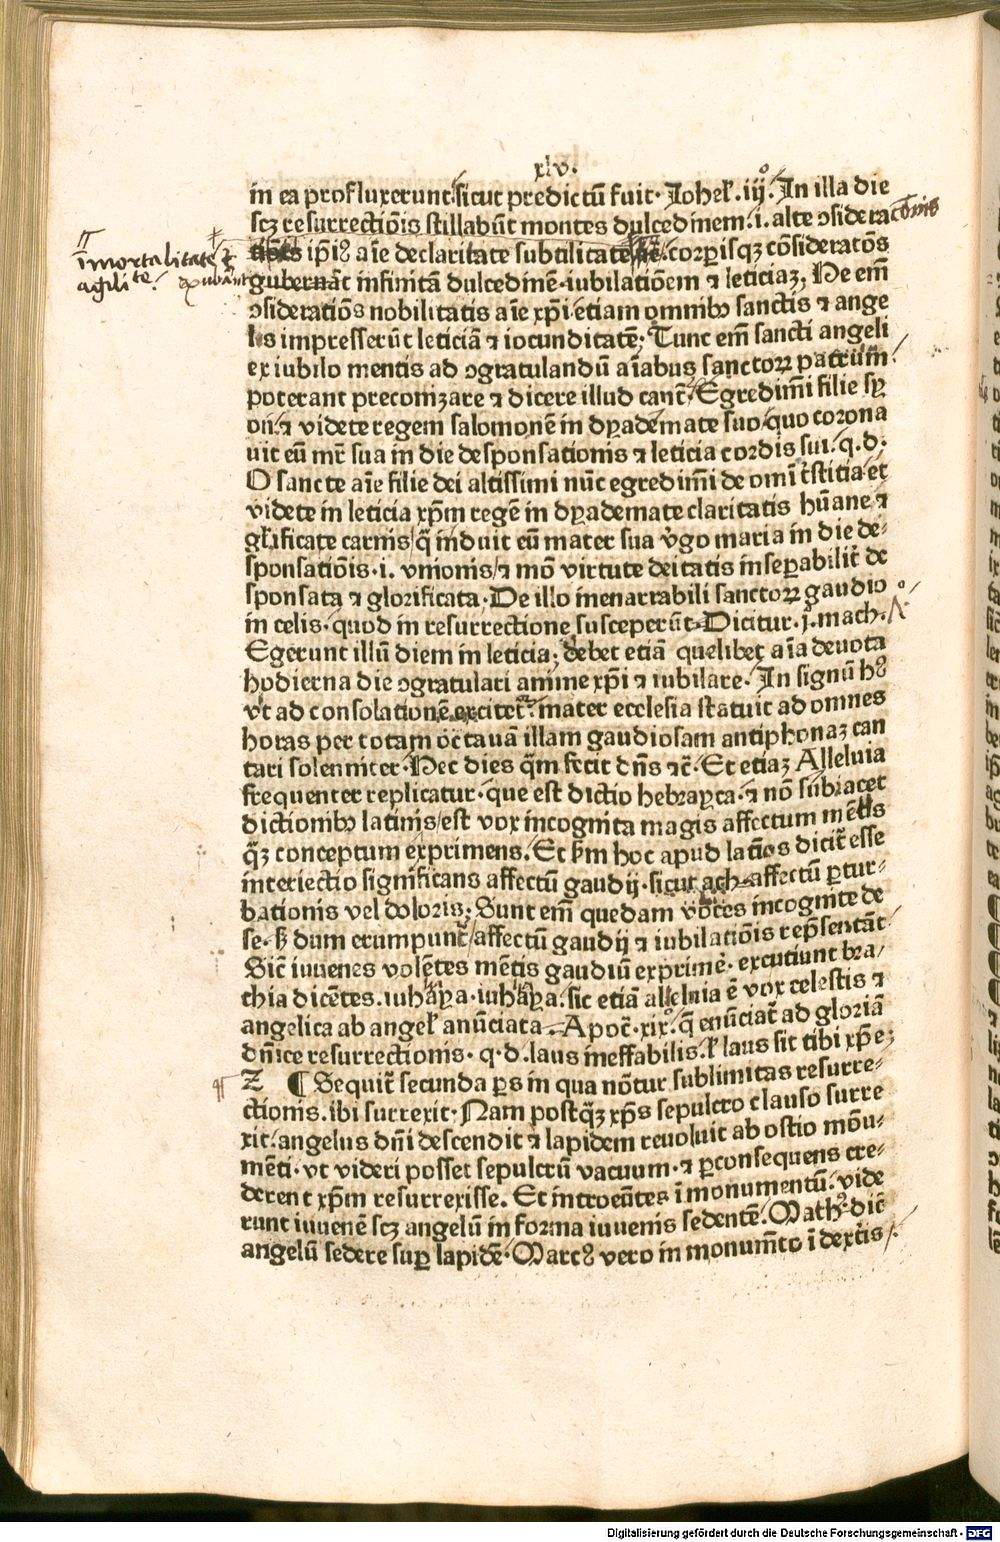 xlv.
in ea profluxerunt. sicut predictū fuit. Johel. iijº. In illa die
scꝫ resurrectiōis stillabūt montes dulcedinem .i. alte ↄsideracōnis
ip̄iꝰ aīe declaritate subtilitate corpisqꝫ cōsideratōs
īmortalitate ⁊
agilite.
gubernāt infinitā dulcedinē. iubilatiōem ⁊ leticiaꝫ, He em̄
ↄsideratiōs nobilitatis aīe xp̄i etiam omnibꝰ sanctis ⁊ ange
lis impresserūt leticiā ⁊ iocunditatē; Tunc em̄ sancti angeli
ex iubilo mentis ad ↄgratulandū aīabus sanctoꝝ patrum
poterant preconizare ⁊ dicere illud canť. Egredimīni filie sy
on ⁊ videte regem salomonē in dyademate suo quo corona
uit eū mr̄ sua in die desponsationis ⁊ leticia cordis sui. q.d.
O sancte aīe filie dei altissimi nūc egredimīni de omī tr̄stitia et
videte in leticia xp̄m regē in dyademate claritatis hūane ⁊
gl̄ificate carnis/ q̄ induit eū mater sua v̓go maria in die de-
sponsatiōis .i. vnionis/ ⁊ mō virtute deitatis insepabilit̓ de
sponsata ⁊ glorificata. De illo inenarrabili sanctoꝝ gaudio
in celis. quod in resurrectione susceperūt. Dicitur. j. mach.
Egerunt illū diem in leticia; debet etiā quelibet aīa deuota
hodierna die ↄgratulari anime xp̄i ⁊ iubilare. In signū hꝰ
vt ad consolationē excitet̓. mater ecclesia statuit ad omnes
horas per totam octauā illam gaudiosam antiphonaꝫ can
tari solenniter. Hec dies q̄m fecit dn̄s ⁊c̄. Et etiaꝫ Alleluia
frequenter replicatur. que est dictio hebrayca. ⁊ nō subiacet
dictionibꝰ latinis/ est vox incognita magis affectum mentis
q̄ꝫ conceptum exprimens. Et ẜm hoc apud latīos dicit̓ esse
interiectio significans affectū gaudij. sicut ach affectū ptur-
bationis vel doloris; Sunt em̄ quedam voces incognite de
se. ẜ dum erumpunt/ affectū gaudij ⁊ iubilatiōis rep̄sentāt
Sic̄ iuuenes volētes mētis gaudiū exprimē. excutiunt bra/
chia dicētes. iuhaya. iuhaya. sic etiā alleluia ē vox celestis ⁊
angelica ab angel̓ anūciata. Apoc̄. xix. q̄ enūciat̓ ad gloriā
dn̄ice resurrectionis. q.d. laus ineffabilis. l̓ laus sit tibi xp̄e;
Z ¶ Sequit̓ secunda ps in qua nōtur sublimitas resurre-
ctionis. ibi surrexit. Nam postq̄ꝫ xp̄s sepulcro clauso surre
xit. angelus dn̄i descendit ⁊ lapidem reuoluit ab ostio mōu-
mēti. vt videri posset sepulcrū vacuum. ⁊ pconsequens cre-
derent xp̄m resurrexisse. Et introeūtes ī monumentū. vide
runt iuuenē scꝫ angelū in forma iuuenis sedentē. Math̓. dic̄
angelū sedere sup lapidē. Marcꝰ vero in monum̄to ī dextris
Digitalisierung gefördert durch die Deutsche Forschungsgemeinschaft - DFG